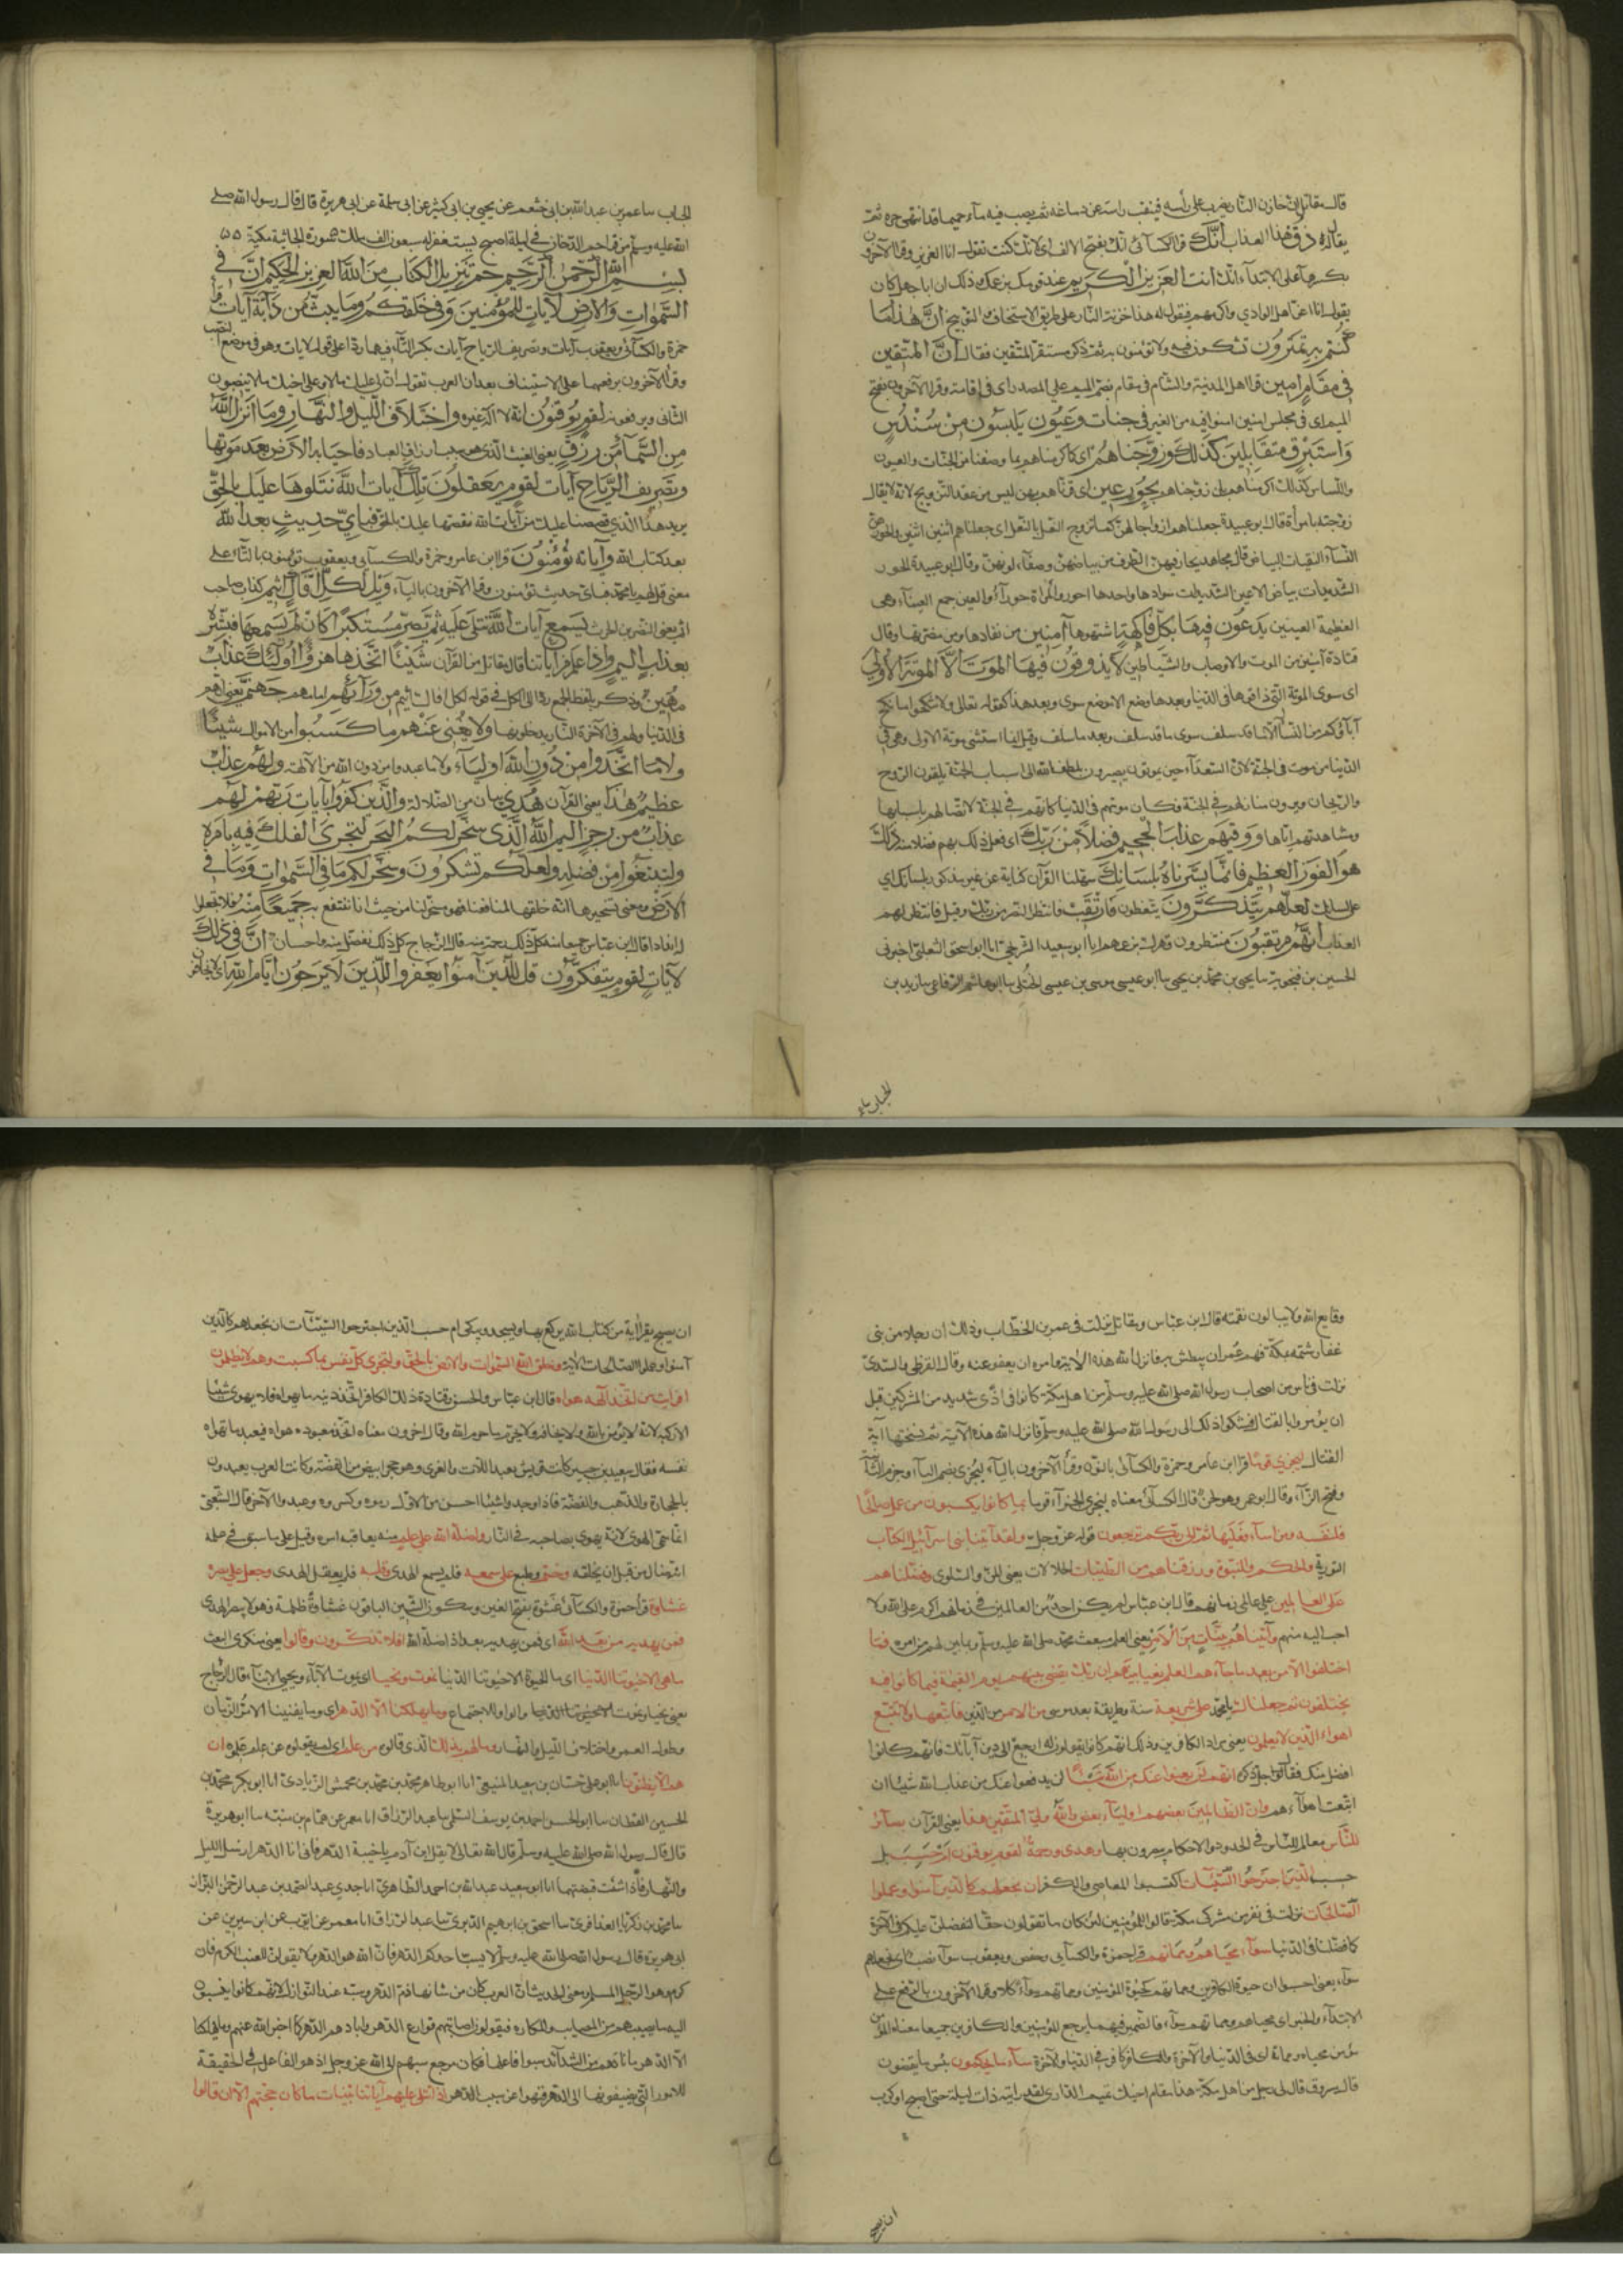 قال مقاتل ان خازن النار يضرب على رأسه فينقب رأسه عن دماغه ثم يصب فيه ماء حميما قد انتهى حره ثم
يقال له ذق هذا العذاب أنك قرأ الكسائي انك بفتح الالف اى لانك كنت تقول انا العزيز وقرأ الآخرون
بكسرها على الابتداء انك انت العزيز الكريم عند قومك بزعمك وذلك ان ابا جهل كان
يقول انا اعز اهل الوادي واكرمهم فيقول له هذا خزنة النار على طريق الاستخفاف والتوبيخ ان هذا ما
كنتم به تمترون تشكون فيه ولا تؤمنون به ثم ذكر مستقر المتقين فقال ان المتقين
في مقام امين قرأ اهل المدينة والشام في مقام بضم الميم على المصدر اى في اقامة وقرأ الآخرون بفتح
الميم اى في مجلس امين امنوا فيه من الغير في جنات وعيون يلبسون من سندس
واستبرق متقابلين كذلك وزوجناهم اى كما اكرمناهم بما وصفنا من الجنات والعيون
واللباس كذلك اكرمناهم بان زوجناهم بحور عين اى قرناهم بهن ليس من عقد التزويج لانه لا يقال
زوجته بامرأة قال ابو عبيدة جعلناهم ازواجا لهن كما تزوج النعل بالنعل اى جعلناهم اثنين اثنين والحور هن
النساء النقيات البياض قال مجاهد يحار فيهن الطرف من بياضهن وصفاء لونهن وقال ابو عبيدة الحور
الشديدات بياض الاعين الشديدات سوادها واحدها احور والمرأة حوراء والعين جمع العيناء وهى
العظيمة العينين يدعون فيها بكل فاكهة اشتهوها آمنين من نفادها ومن مضرتها وقال
قتادة آمنين من الموت والاوصاب والشياطين لا يذوقون فيها الموت الا الموتة الاولى
اى سوى الموتة التي ذاقوها في الدنيا وبعدها وضع الا موضع سوى وبعد هذا كقوله تعالى ولا تنكحوا ما نكح
آباؤكم من النساء الا ما قد سلف سوى ما قد سلف وبعد ما سلف وقيل انما استثنى موتة الاولى وهى في
الدنيا من موت في الجنة لان السعداء حين يموتون يصيرون بلطف الله الى اسباب الجنة يلقون الروح
والريحان ويرون منازلهم في الجنة فكان موتهم في الدنيا كانهم في الجنة لاتصالهم باسبابها
ومشاهدتهم اياها ووقيهم عذاب الجحيم فضلا من ربك اى فعل ذلك بهم فضلا منه ذلك
هو الفوز العظيم فانما يسرناه بلسانك سهلنا القرآن كناية عن غير مذكور بلسانك اي
على لسانك لعلهم يتذكرون يتعظون فارتقب فانتظر النصر من ربك وقيل فانتظر لهم
العذاب انهم مرتقبون منتظرون قهرك بزعمهم انا ابو سعيد الشريحي انا ابو اسحق الثعلبي اخبرني
الحسين بن فنجويه ثنا يحيى بن محمد بن يحيى ثنا ابو عيسى موسى بن عيسى الختلي ثنا ابو هاشم الرفاعي ثنا زيد بن
الحباب ثنا عمر
الحباب ثنا عمر بن عبد الله بن ابى خثعم عن يحيى بن ابى كثير عن ابى سلمة عن ابى هريرة قال قال رسول الله صلى
الله عليه وسلم من قرأ حم الدخان في ليلة اصبح يستغفر له سبعون الف ملك سورة الجاثية مكية
بسم الله الرحمن الرحيم حم تنزيل الكتاب من الله العزيز الحكيم ان في
السموات والارض لآيات للمؤمنين وفي خلقكم وما يبث من دابة آيات قرأ
حمزة والكسائي ويعقوب آيات وتصريف الرياح آيات بكسر التاء فيهما ردا على قوله لآيات وهو في موضع النصب
وقرأ الآخرون برفعهما على الاستيناف بعد ان العرب تقول ان لى عليك مالا وعلى اخيك مال ينصبون
الثاني ويرفعونه لقوم يوقنون انه لا اله غيره واختلاف الليل والنهار وما انزل الله
من السماء من رزق يعنى الغيث الذى هو سبب ارزاق العباد فاحيا به الارض بعد موتها
وتصريف الرياح آيات لقوم يعقلون تلك آيات الله نتلوها عليك بالحق
يريد هذا الذي قصصنا عليك من آيات الله نقصها عليك بالحق فباي حديث بعد الله
بعد كتاب الله وآياته تؤمنون قرأ ابن عامر وحمزة والكسائي ويعقوب تؤمنون بالتاء على
معنى قل لهم يا محمد فباى حديث تؤمنون وقرأ الآخرون بالياء ويل لكل افاك اثيم كذاب صاحب
اثم يعنى النضر بن الحارث يسمع آيات الله تتلى عليه ثم يصر مستكبرا كان لم يسمعها فبشره
بعذاب اليم واذا علم من آياتنا قال مقاتل من القرآن شيئا اتخذها هزوا اولئك لهم عذاب
مهين وذكر بلفظ الجمع ردا الى كل في قوله لكل افاك اثيم من ورآئهم امامهم جهنم يعنى انهم
في الدنيا ولهم في الآخرة النار يدخلونها ولا يغنى عنهم ما كسبوا من الاموال شيئا
ولا ما اتخذوا من دون الله اولياء ولا ما عبدوا من دون الله من الآلهة ولهم عذاب
عظيم هذا يعنى القرآن هدى بيان من الضلالة والذين كفروا بآيات ربهم لهم
عذاب من رجز اليم الله الذى سخر لكم البحر لتجرى الفلك فيه بامره
ولتبتغوا من فضله ولعلكم تشكرون وسخر لكم ما في السموات وما في
الارض ومعنى تسخيرها انه خلقها لمنافعنا فهو مسخر لنا من حيث انا ننتفع به جميعا منه فلا تجعلوا
له اندادا قال ابن عباس جميعا منه كل ذلك رحمة منه قال الزجاج كل ذلك تفضل منه واحسان ان في ذلك
لآيات لقوم يتفكرون قل للذين آمنوا يغفروا للذين لا يرجون ايام الله اى لا يخافون
وقايع الله ولا يبالون نقمته قال ابن عباس ومقاتل نزلت في عمر بن الخطاب وذلك ان رجلا من بنى
غفار شتمه بمكة فهم عمر ان يبطش به فانزل الله هذه الآية وامره ان يعفو عنه وقال القرظي والسدى
نزلت في ناس من اصحاب رسول الله صلى الله عليه وسلم من اهل مكة كانوا في اذى شديد من المشركين قبل
ان يؤمروا بالقتال فشكوا ذلك الى رسول الله صلى الله عليه وسلم فانزل الله هذه الآية ثم نسختها آية
القتال ليجزي قوما قرأ ابن عامر وحمزة والكسائى بالنون وقرأ الآخرون بالياء
وفتح الزاء وقال ابو عمرو وهو لحن قال الكسائى معناه ليجزى الجزاء قوما بما كانوا يكسبون من عمل صالحا
فلنفسه ومن اساء فعليها ثم الى ربكم ترجعون قوله عز وجل ولقد آتينا بنى اسرآئيل الكتاب
التورية والحكم والنبوة ورزقناهم من الطيبات الحلالات يعنى المن والسلوى وفضلناهم
على العالمين على عالمى زمانهم قال ابن عباس لم يكن احد من العالمين في زمانهم اكرم على الله ولا
احب اليه منهم وآتيناهم بينات من الامر يعنى العلم بمبعث محمد صلى الله عليه وسلم وما بين لهم من امره فما
اختلفوا الا من بعد ما جاءهم العلم بغيا بينهم ان ربك يقضى بينهم يوم القيمة فيما كانوا فيه
يختلفون ثم جعلناك يا محمد على شريعة سنة وطريقة بعد موسى من الامر من الدين فاتبعها ولا تتبع
اهواء الذين لا يعلمون يعنى مراد الكافرين وذلك انهم كانوا يقولون له ارجع الى دين آبائك فانهم كانوا
افضل منك فقال جل ذكره انهم لن يغنوا عنك من الله شيئا لن يدفعوا عنك من عذاب الله شيئا ان
اتبعت اهواءهم وان الظالمين بعضهم اولياء بعض والله ولى المتقين هذا يعنى القرآن بصائر
للناس معالم للناس في الحدود والاحكام يبصرون بها وهدى ورحمة لقوم يوقنون ام حسب بل
حسب الذين اجترحوا السيئات اكتسبوا المعاصى والكفر ان نجعلهم كالذين آمنوا وعملوا
الصالحات نزلت في نفر من مشركى مكة قالوا للمؤمنين لئن كان ما تقولون حقا لنفضلن عليكم في الآخرة
كما فضلنا في الدنيا سواء محياهم ومماتهم قرأ حمزة والكسائى وحفص ويعقوب سواء نصب اى نجعلهم
سواء يعنى احسبوا ان حيوة الكافرين ومماتهم كحيوة المؤمنين ومماتهم سواء كلا وقرأ الآخرون بالرفع على
الابتداء والخبر اى محياهم ومماتهم سواء فالضمير فيهما يرجع للمؤمنين والكافرين جميعا معناه المؤمن
مؤمن محياه ومماته اى في الدنيا والآخرة والكافر كافر في الدنيا والآخرة ساء ما يحكمون بئس ما يقضون
قال مسروق قال لى رجل من اهل مكة هذا مقام اخيك تميم الدارى لقد رايته ذات ليلة حتى اصبح او كرب
ان يصبح
ان يصبح يقرأ آية من كتاب الله يركع بها ويسجد ويبكى ام حسب الذين اجترحوا السيئات ان نجعلهم كالذين
آمنوا وعملوا الصالحات الآية وخلق الله السموات والارض بالحق ولتجزى كل نفس بما كسبت وهم لا يظلمون
افرايت من اتخذ الهه هواه قال ابن عباس والحسن وقتادة ذلك الكافر اتخذ دينه ما يهواه فلا يهوى شيئا
الا ركبه لانه لا يؤمن بالله ولا يخافه ولا يحرم ما حرم الله وقال آخرون معناه اتخذ معبوده هواه فيعبد ما تهواه
نفسه فقال سعيد بن جبير كانت قريش يعبد اللات والعزى وهو حجر ابيض من الفضة وكانت العرب يعبدون
بالحجارة والذهب والفضة فاذا وجدوا شيئا احسن من الاول رموه وكسروه وعبدوا الآخر قال الشعبى
انما سمى الهوى لانه يهوى بصاحبه في النار واضله الله على علم منه بعاقبة امره وقيل على ما سبق في علمه
انه ضال من قبل ان يخلقه وختم وطبع على سمعه فلم يسمع الهدى وقلبه فلم يعقل الهدى وجعل على بصره
غشاوة قرأ حمزة والكسائى غشوة بفتح الغين وسكون الشين الباقون غشاوة ظلمة فهو لا يبصر الهدى
فمن يهديه من بعد الله اى فمن يهديه بعد اذ اضله الله افلا تذكرون وقالوا يعنى منكرى البعث
ما هي الا حيوتنا الدنيا اى ما الحيوة الا حيوتنا الدنيا نموت ونحيا اى يموت الآباء ويحيى الابناء وقال الزجاج
يعنى نحيا ونموت فالواو للاجتماع وما يهلكنا الا الدهر اى وما يفنينا الا مر الزمان
وطول العمر واختلاف الليل والنهار وما لهم بذلك الذى قالوه من علم اى لم يقولوه عن علم علموه ان
هم الا يظنون انا ابو على حسان بن سعيد المنيعى انا ابو طاهر محمد بن محمد بن محمش الزيادى انا ابو بكر محمد بن
الحسين القطان ثنا ابو الحسن احمد بن يوسف السلمى ثنا عبد الرزاق انا معمر عن همام بن منبه ثنا ابو هريرة
قال قال رسول الله صلى الله عليه وسلم قال الله تعالى لا يقل ابن آدم يا خيبة الدهر فانى انا الدهر ارسل الليل
والنهار فاذا شئت قبضتهما انا ابو سعيد عبد الله بن احمد الطاهرى انا جدى عبد الصمد بن عبد الرحمن البزاز
ثنا محمد بن زكريا العذافرى ثنا اسحق بن ابرهيم الدبرى ثنا عبد الرزاق انا معمر عن ايوب عن ابن سيرين عن
ابى هريرة قال رسول الله صلى الله عليه وسلم لا يسب احدكم الدهر فان الله هو الدهر ولا يقولن للعنب الكرم فان
الكرم هو الرجل المسلم ومعنى الحديث ان العرب كان من شانها ذم الدهر وسبه عند النوازل لانهم كانوا ينسبون
اليه ما يصيبهم من المصايب والمكاره فيقولون اصابتهم قوارع الدهر وابادهم الدهر كما اخبر الله عنهم وما يهلكنا
الا الدهر فكان مرجع سبهم الى الله عز وجل اذ هو الفاعل في الحقيقة
للامور التى يضيفونها الى الدهر فنهوا عن سب الدهر اذا تتلى عليهم آياتنا بينات ما كان حجتهم الا ان قالوا